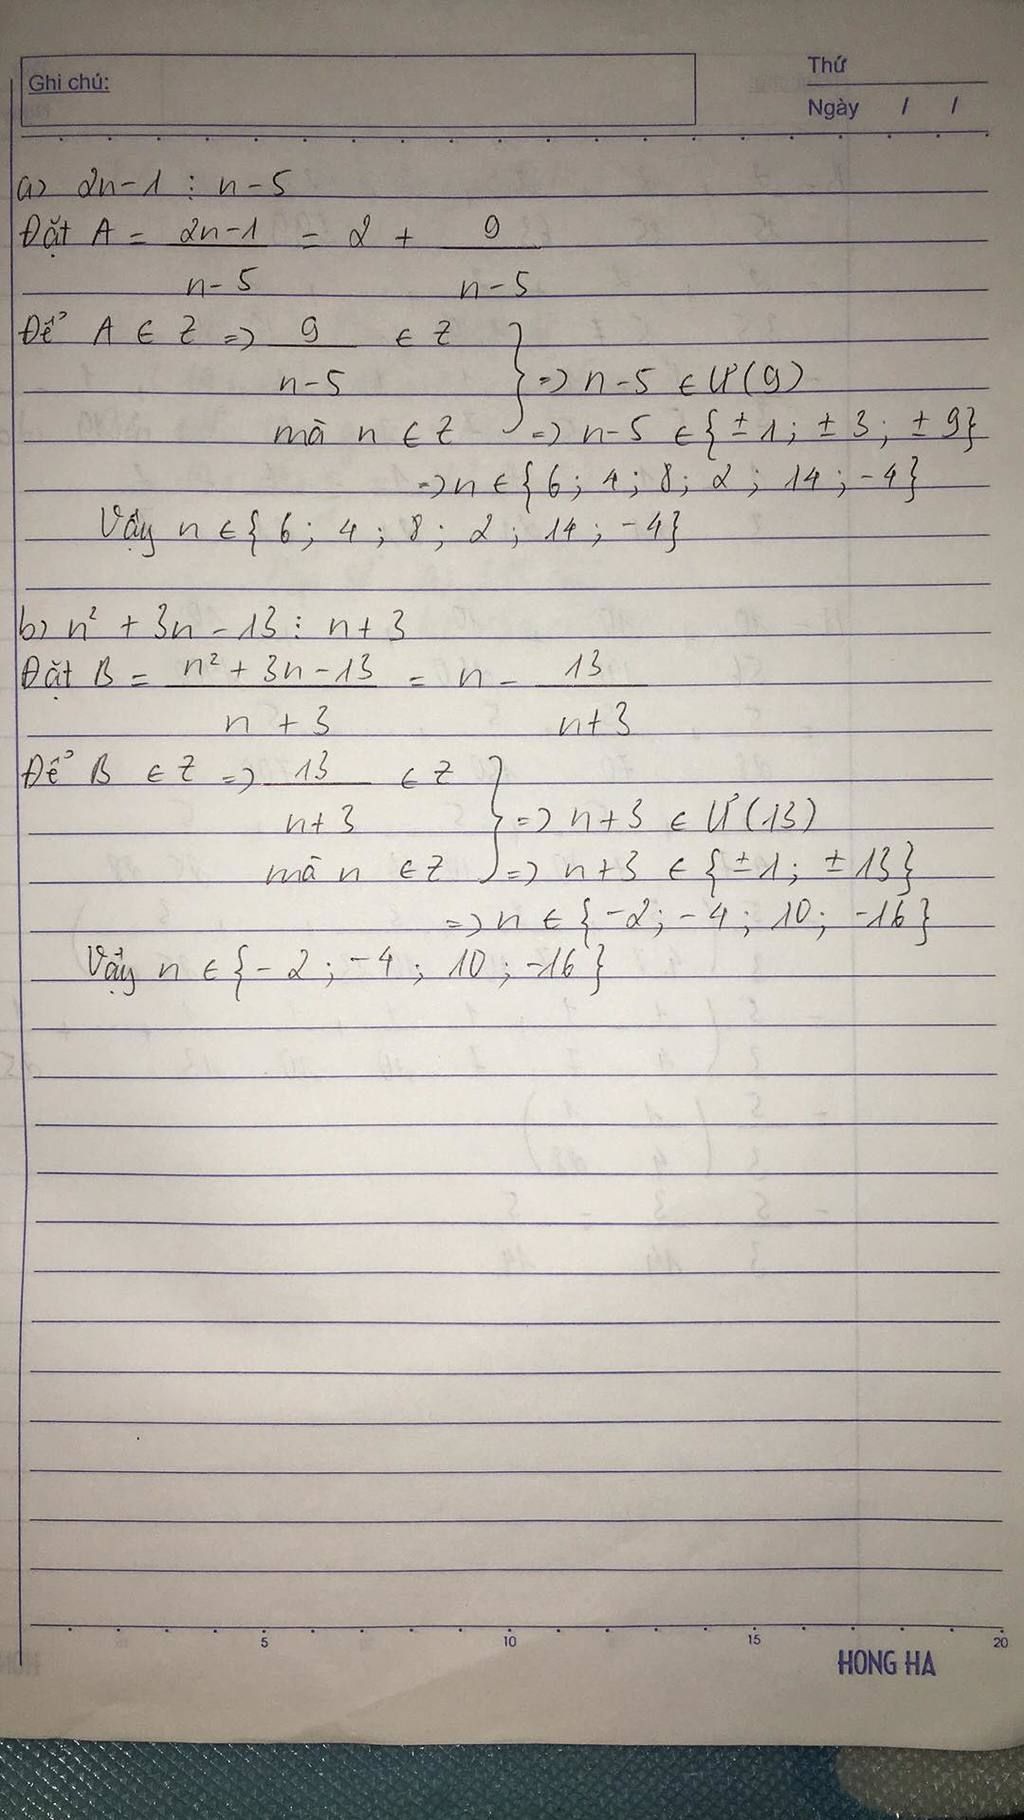 Ghi chú:
Thứ
Ngày / /
a) 2n-1 ⋮ n-5
Đặt A = 2n-1 = 2 + 9
n-5 n-5
Để A ∈ Z => 9 ∈ Z
n-5 } => n-5 ∈ Ư(9)
mà n ∈ Z => n-5 ∈ {±1; ±3; ±9}
=> n ∈ {6; 4; 8; 2; 14; -4}
Vậy n ∈ {6; 4; 8; 2; 14; -4}
b) n² + 3n - 13 ⋮ n+3
Đặt B = n² + 3n - 13 = n - 13
n + 3 n+3
Để B ∈ Z => 13 ∈ Z
n+3 } => n+3 ∈ Ư(13)
mà n ∈ Z => n+3 ∈ {±1; ±13}
=> n ∈ {-2; -4; 10; -16}
Vậy n ∈ {-2; -4; 10; -16}
5 10 15 20
HONG HA